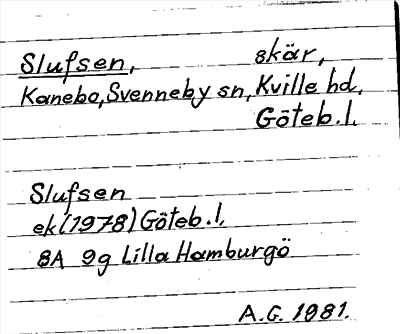 Slufsen, skär,
Kanebo, Svenneby sn, Kville hd,
Göteb. l.
Slufsen
ek (1978) Göteb. l.
8A 9g Lilla Hamburgö
A.G. 1981.